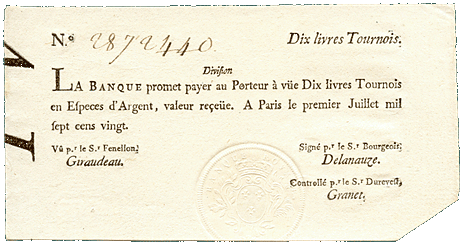 N.º 2872440. Dix livres Tournois.
Division
LA BANQUE promet payer au Porteur à vüe Dix livres Tournois
en Eſpeces d'Argent, valeur reçeüe. A Paris le premier Juillet mil
ſept cens vingt.
Vû p.r le S.r Feneſlon. Signé p.r le S.r Bourgeois.
Giraudeau. Delanauze.
Controllé p.r le S.r Dureveſt,
Granet.